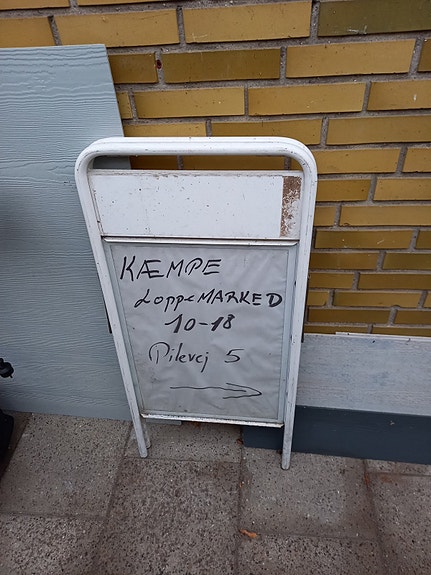 KÆMPE
LoppeMARKED
10-18
Pilevej 5